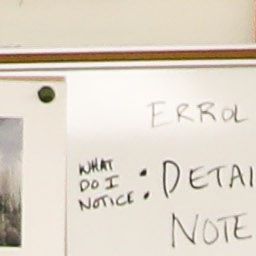 ERROL
WHAT
DO I
NOTICE : DETAI
NOTE